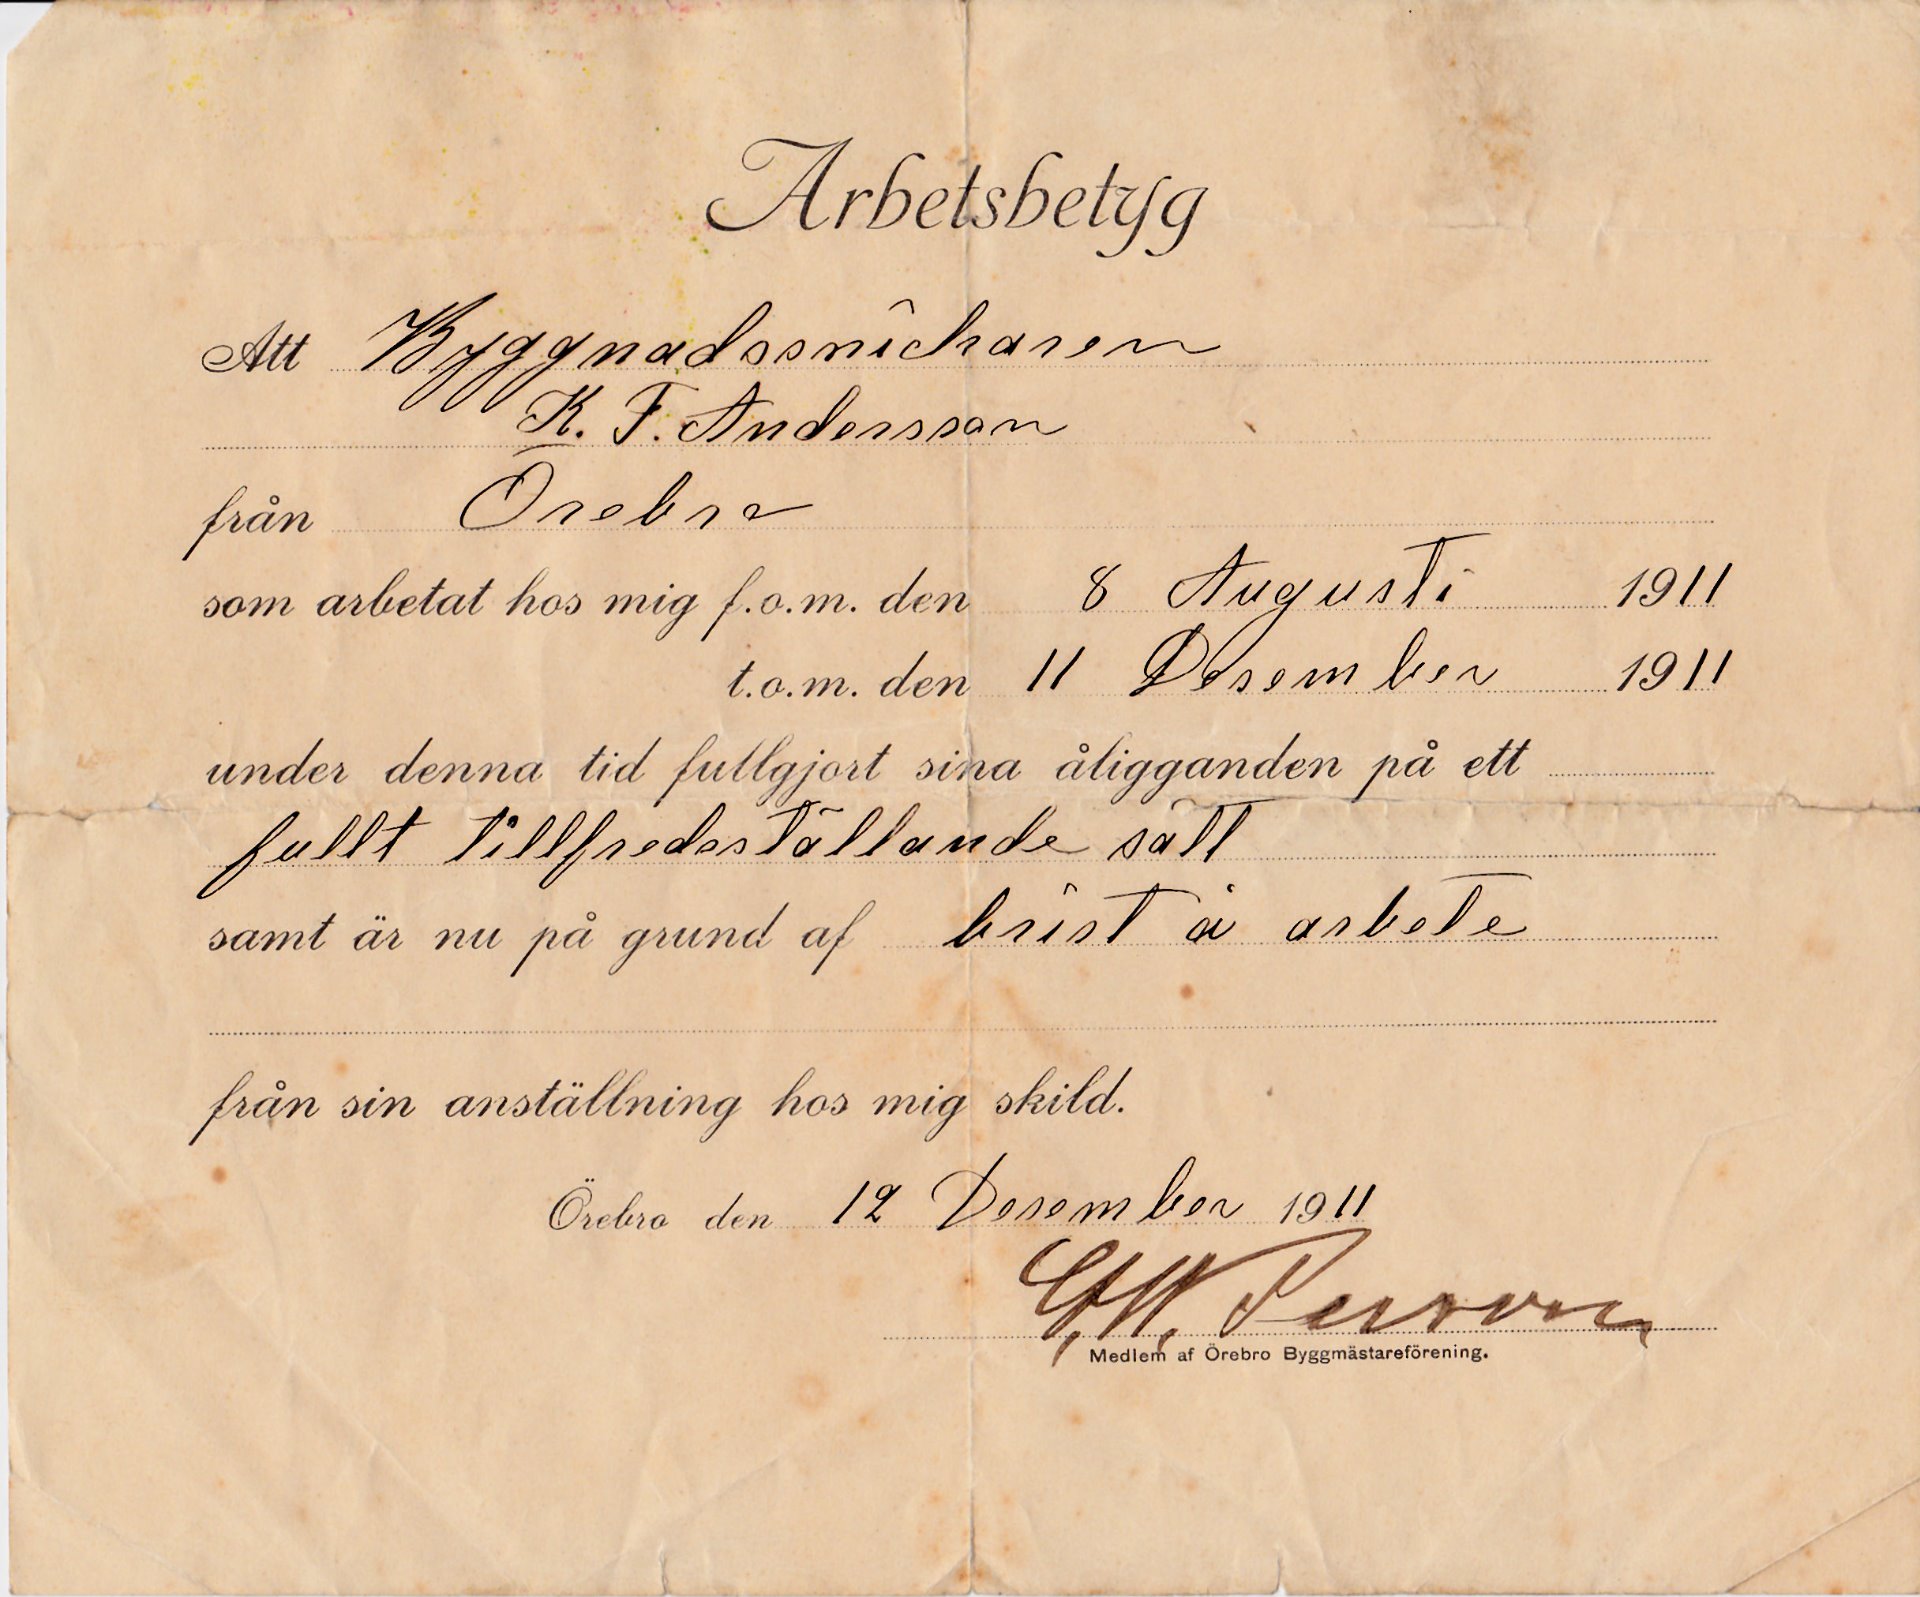 Arbetsbetyg
Att Byggnadssnickaren
K. F. Andersson
från Örebro
som arbetat hos mig f.o.m. den 8 Augusti 1911
t.o.m. den 11 Desember 1911
under denna tid fullgjort sina åligganden på ett
fullt tillfredsställande sätt
samt är nu på grund af brist å arbete
från sin anställning hos mig skild.
Örebro den 12 Desember 1911
Persson
Medlem af Örebro Byggmästareförening.